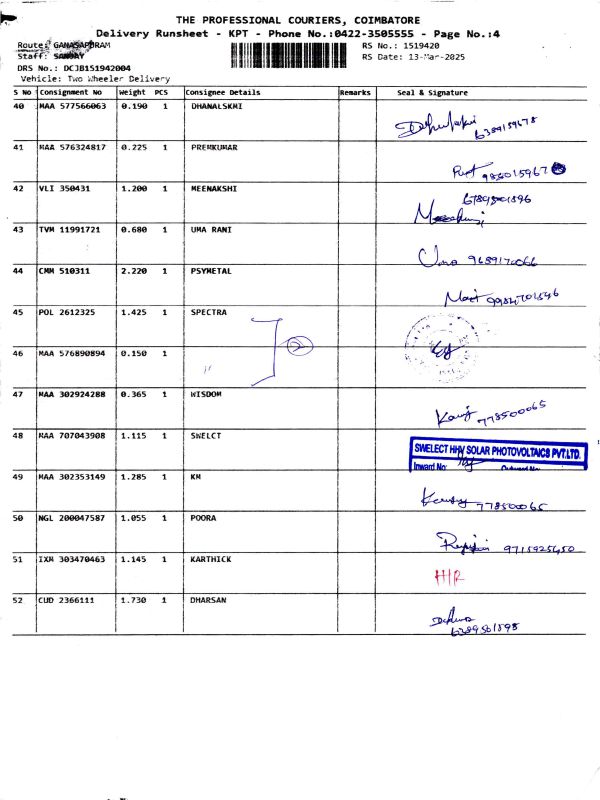 THE PROFESSIONAL COURIERS, COIMBATORE
Delivery Runsheet - KPT - Phone No.:0422-3505555 - Page No.:4
Route: GANASAPURAM
RS No.: 1519420
Staff: SANJAY
RS Date: 13-Mar-2025
DRS No.: DCJB151942004
Vehicle: Two Wheeler Delivery
S No Consignment No Weight PCS Consignee Details Remarks Seal & Signature
40 MAA 577566063 0.190 1 DHANALSKMI
6389159678
41 MAA 576324817 0.225 1 PREMKUMAR
42 VLI 350431 1.200 1 MEENAKSHI
43 TVM 11991721 0.680 1 UMA RANI
Uma 9689170066
44 CMM 510311 2.220 1 PSYMETAL
45 POL 2612325 1.425 1 SPECTRA
2
46 MAA 576890894 0.150 1
"
47 MAA 302924288 0.365 1 WISDOM
778500065
48 MAA 707043908 1.115 1 SWELCT
SWELECT HHV SOLAR PHOTOVOLTAICS PVT.LTD.
Inward No:
49 MAA 302353149 1.285 1 KM
778500065
50 NGL 200047587 1.055 1 POORA
9715925450
51 IXM 303470463 1.145 1 KARTHICK
H/R
52 CUD 2366111 1.730 1 DHARSAN